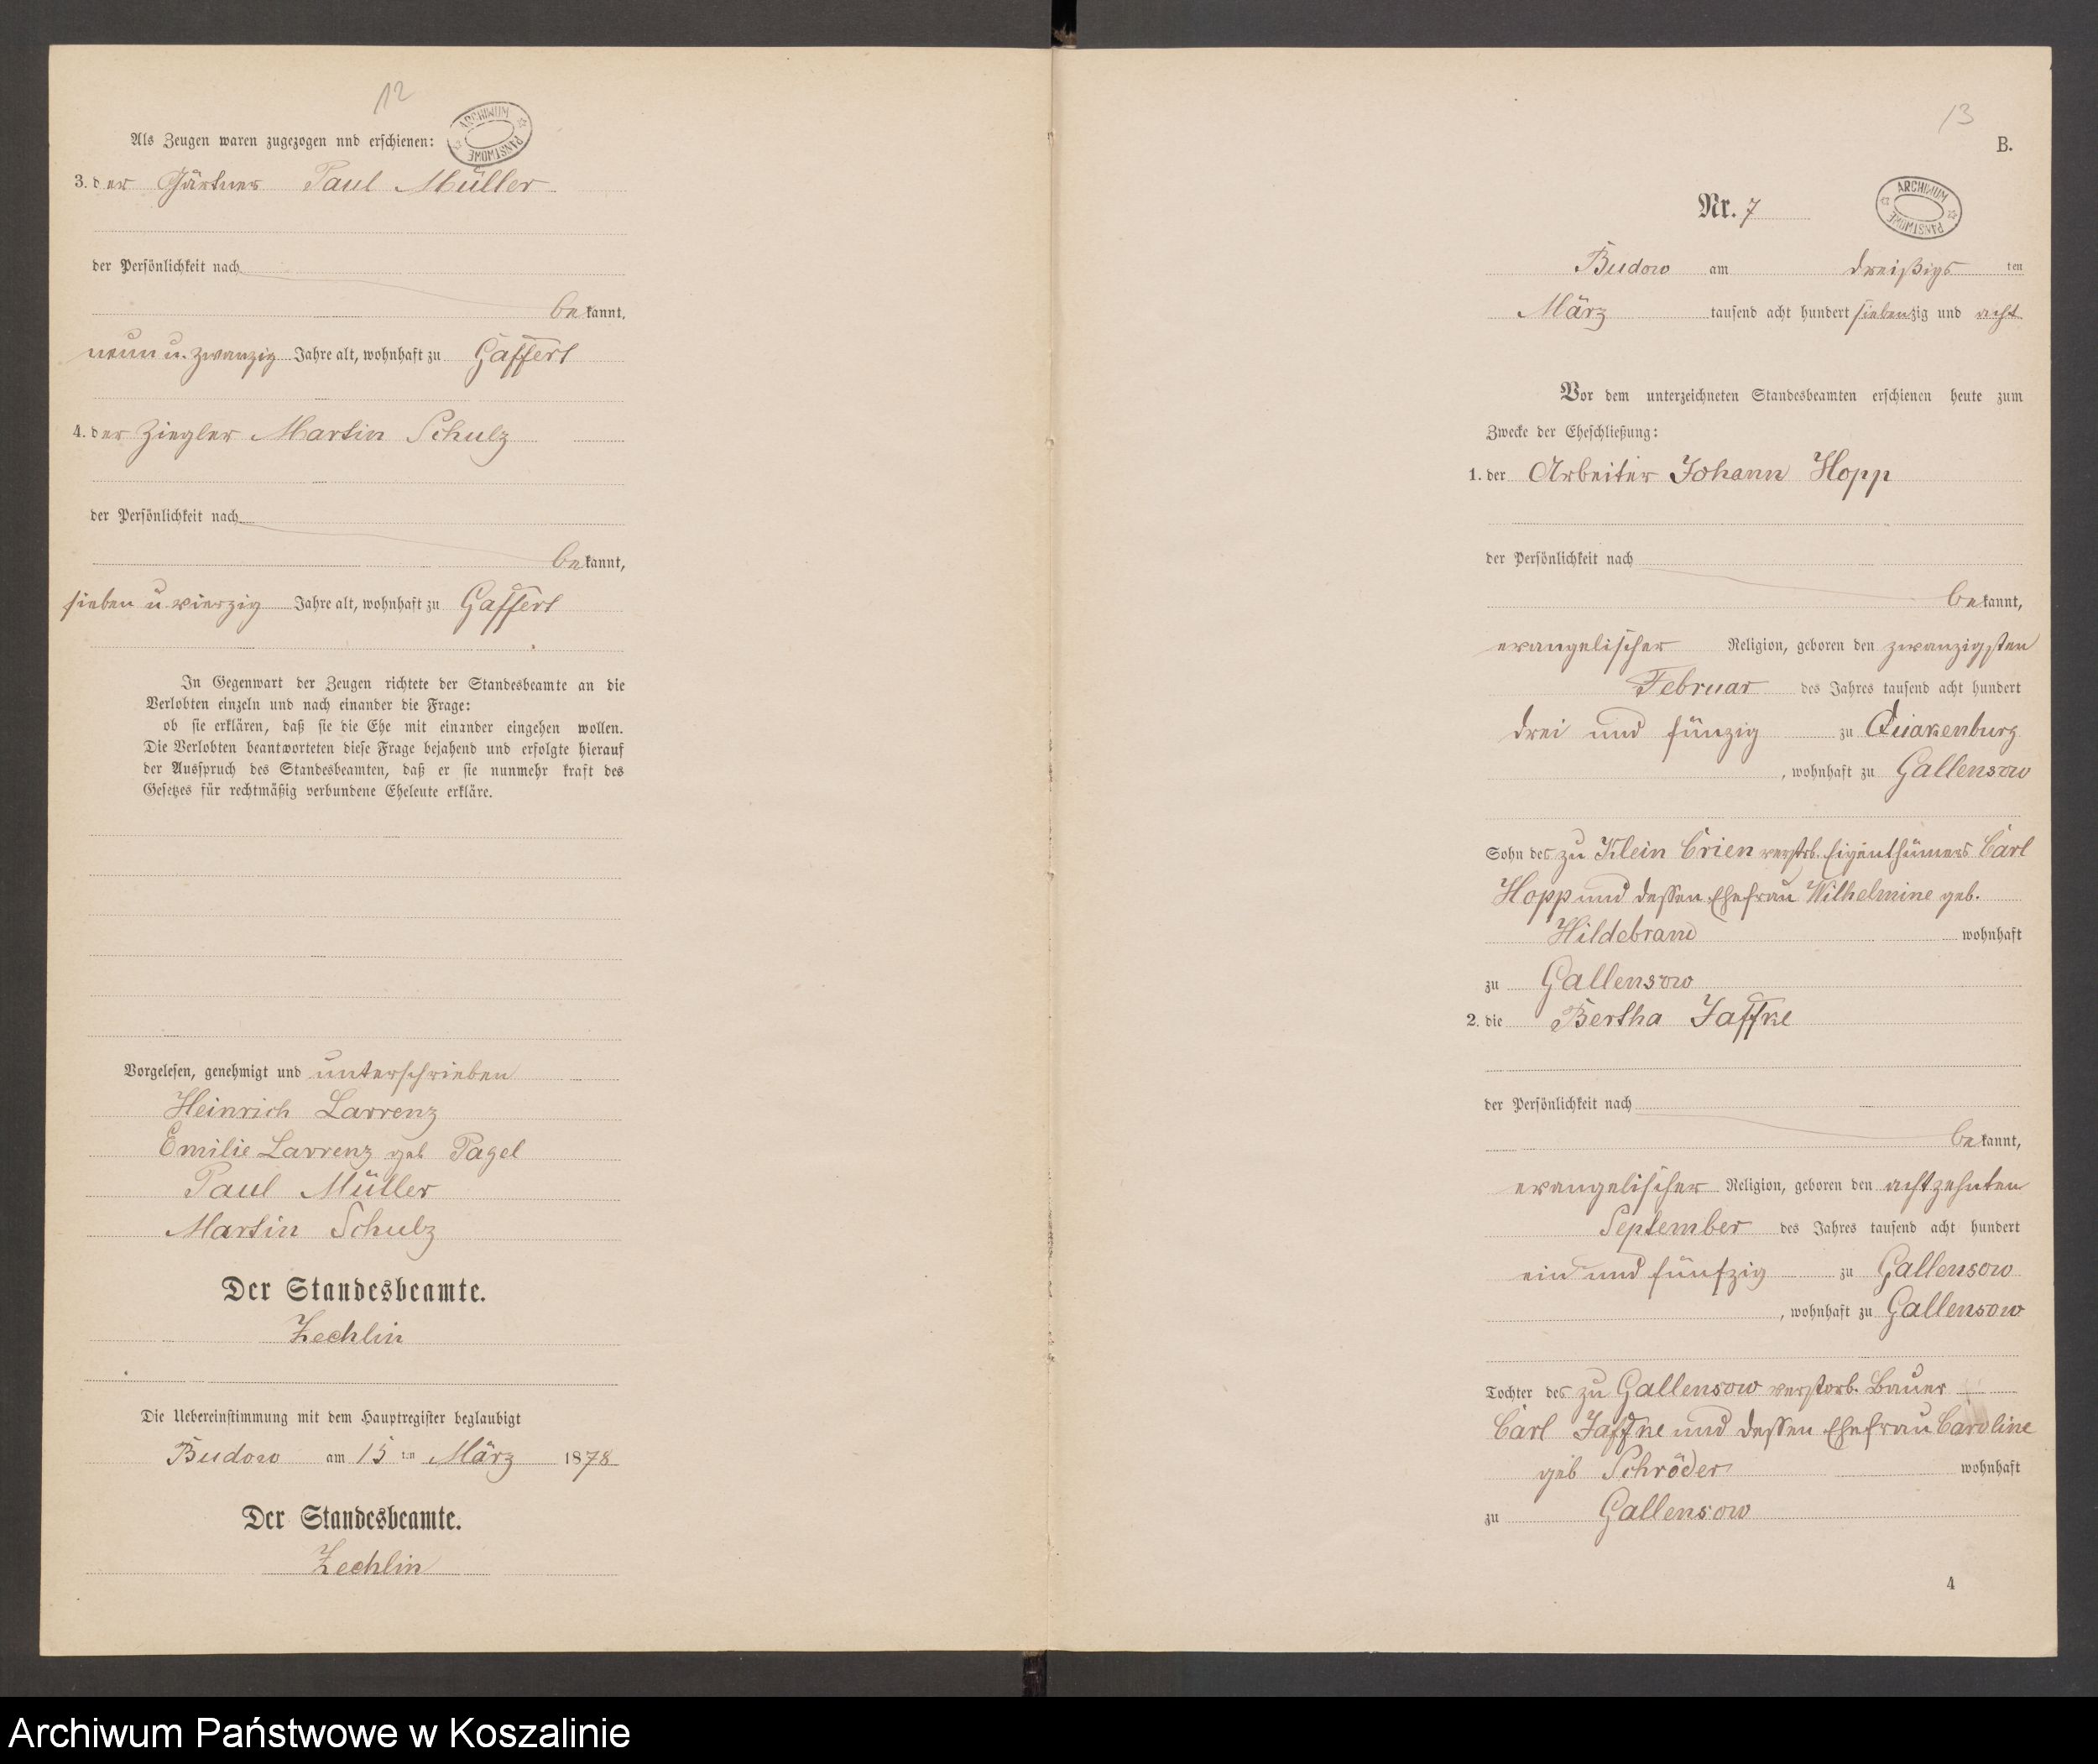 12
ARCHIWUM PAŃSTWOWE
Als Zeugen waren zugezogen nnd erschienen:
3. der Gärtner Paul Müller
der Persönlichkeit nach
bekannt,
neun u. zwanzig Jahre alt, wohnhaft zu Gaffert
4. der Ziegler Martin Schulz
der Persönlichkeit nach
bekannt,
sieben u. vierzig Jahre alt, wohnhaft zu Gaffert
In Gegenwart der Zeugen richtete der Standesbeamte an die
Verlobten einzeln und nach einander die Frage:
ob sie erklären, daß sie die Ehe mit einander eingehen wollen.
Die Verlobten beantworteten diese Frage bejahend und erfolgte hierauf
der Ausspruch des Standesbeamten, daß er sie nunmehr kraft des
Gesetzes für rechtmäßig verbundene Eheleute erkläre.
Vorgelesen, genehmigt und unterschrieben
Heinrich Larrenz
Emilie Larrenz geb Pagel
Paul Müller
Martin Schulz
Der Standesbeamte.
Zechlin
Die Uebereinstimmung mit dem Hauptregister beglaubigt
Budow am 15 ten März 1878
Der Standesbeamte.
Zechlin
13
B.
Nr. 7
ARCHIWUM PAŃSTWOWE
Budow am dreißigs ten
März tausend acht hundert siebenzig und acht
Vor dem unterzeichneten Standesbeamten erschienen heute zum
Zwecke der Eheschließung:
1. der Arbeiter Johann Hopp
der Persönlichkeit nach
bekannt,
evangelischer Religion, geboren den zwanzigsten
Februar des Jahres tausend acht hundert
drei und fünzig zu Quakenburg
, wohnhaft zu Gallensow
Sohn des zu Klein Crien verstrb. Eigenthümers Carl
Hopp und dessen Ehefrau Wilhelmine geb.
Hildebrand wohnhaft
zu Gallensow
2. die Bertha Jaffke
der Persönlichkeit nach
bekannt,
evangelischer Religion, geboren den achtzehnten
September des Jahres tausend acht hundert
ein und fünfzig zu Gallensow
, wohnhaft zu Gallensow
Tochter des zu Gallensow verstorb. Bauer
Carl Jaffke und dessen Ehefrau Caroline
geb Schröder wohnhaft
zu Gallensow
4
Archiwum Państwowe w Koszalinie